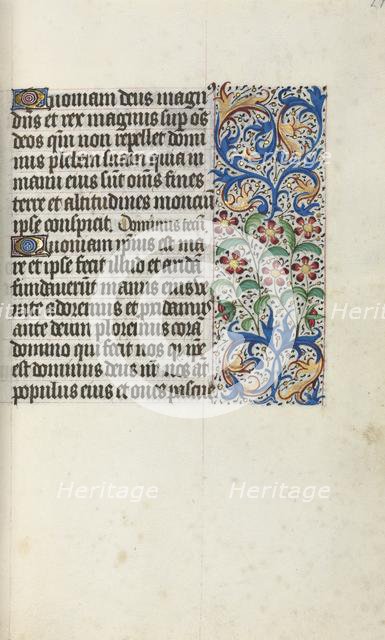 Quoniam deus magn
dñs et rex magnus sup oẽs
deos qm̃ non repellet domi
nus plebem suam quia in
manu eius sũt oms̃ fines
terre et altitudines monciu
ipse conspicit. Dominus
Quoniam ipius est ma
re et ipse fecit illud et
fundaverũt manus eius ve
adoremus et
ante deum ploremus cora
domino qui fecit nos quia ipe
est dominus deus nr̃ nos at
populus eius et oues pascue
Heritage
Heritage
Heritage